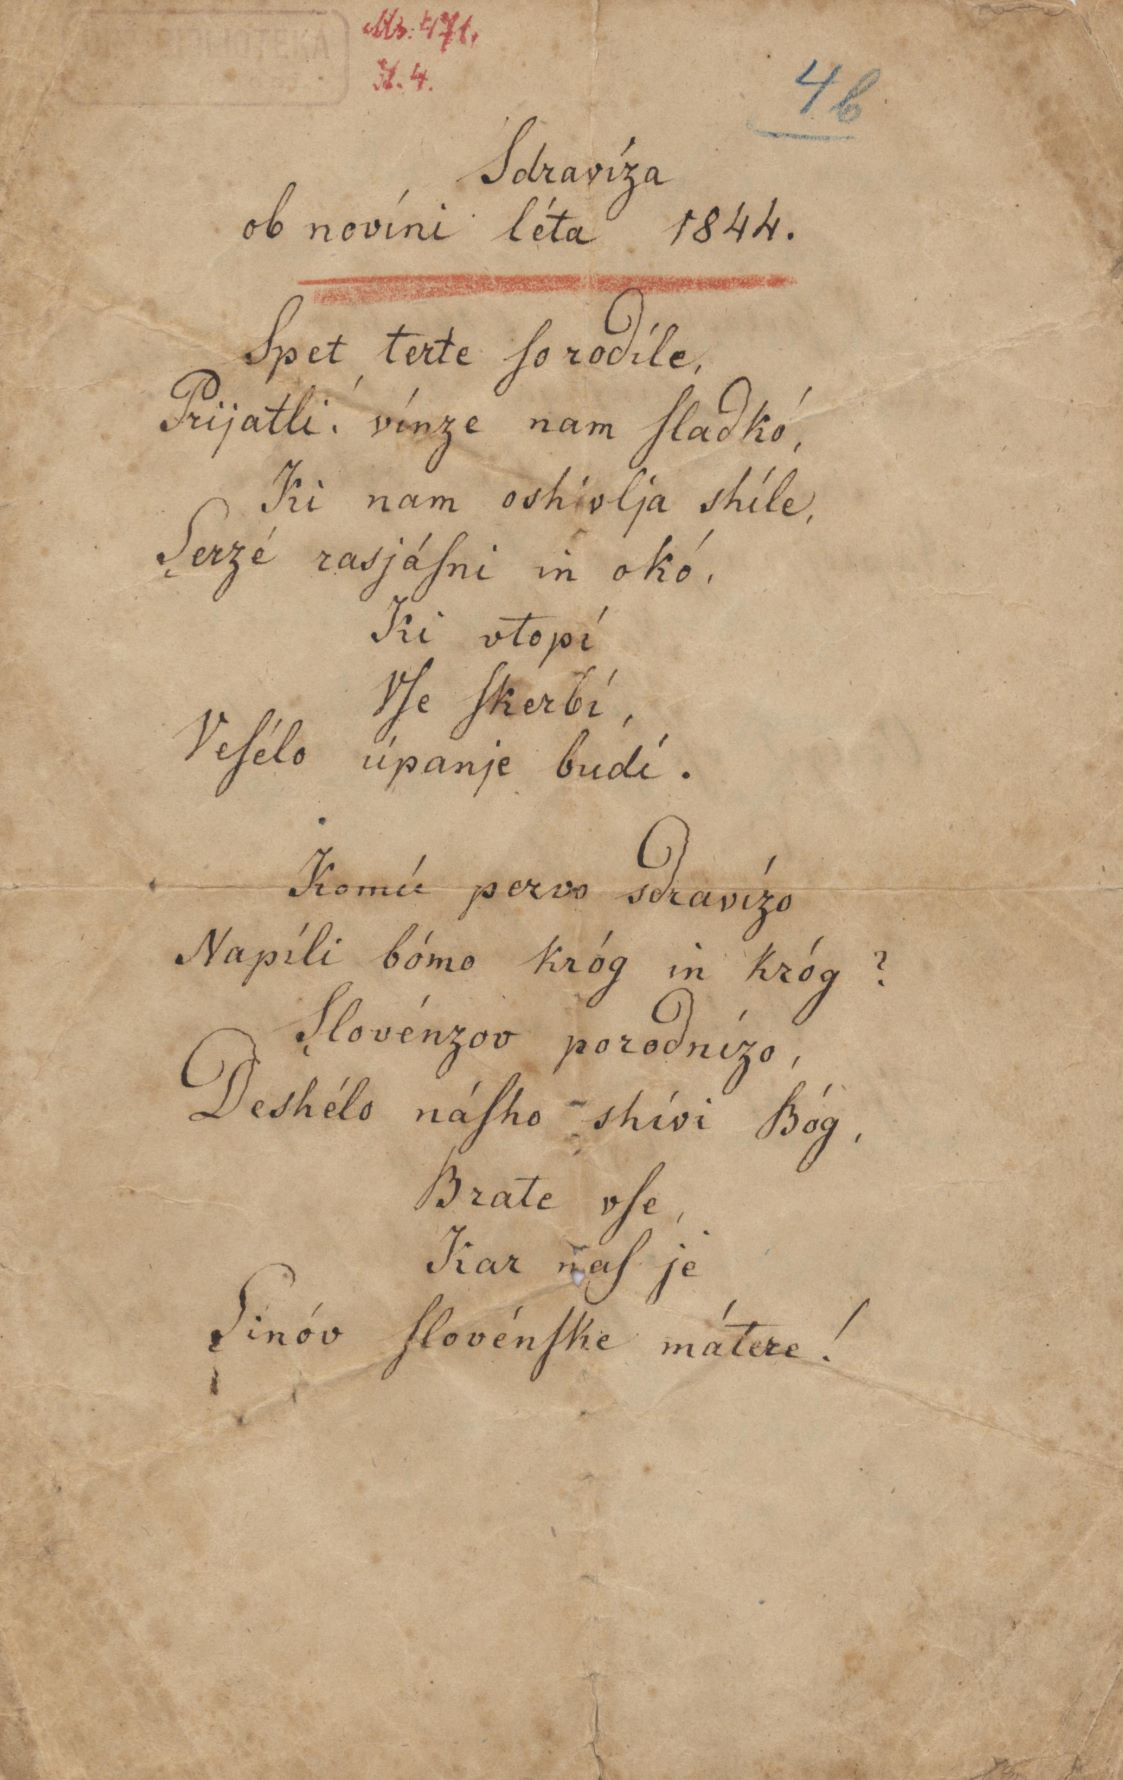 BIBLIOTEKA
Ms. 471.
N. 4.
4b
Sdravíza
ob novíni léta 1844.
Spet terte ſo rodíle,
Prijatli! vínze nam ſladkó,
Ki nam oshivlja shíle,
Serzé rasjáſni in okó,
Ki vtopí
Vſe ſkerbí,
Veſélo úpanje budí.
Komú pervo sdravízo
Napíli bómo króg in króg?
Slovénzov porodnízo,
Deshélo náſho shívi Bóg,
Brate vſe,
Kar naſ je
Sinóv ſlovénſke mátere!